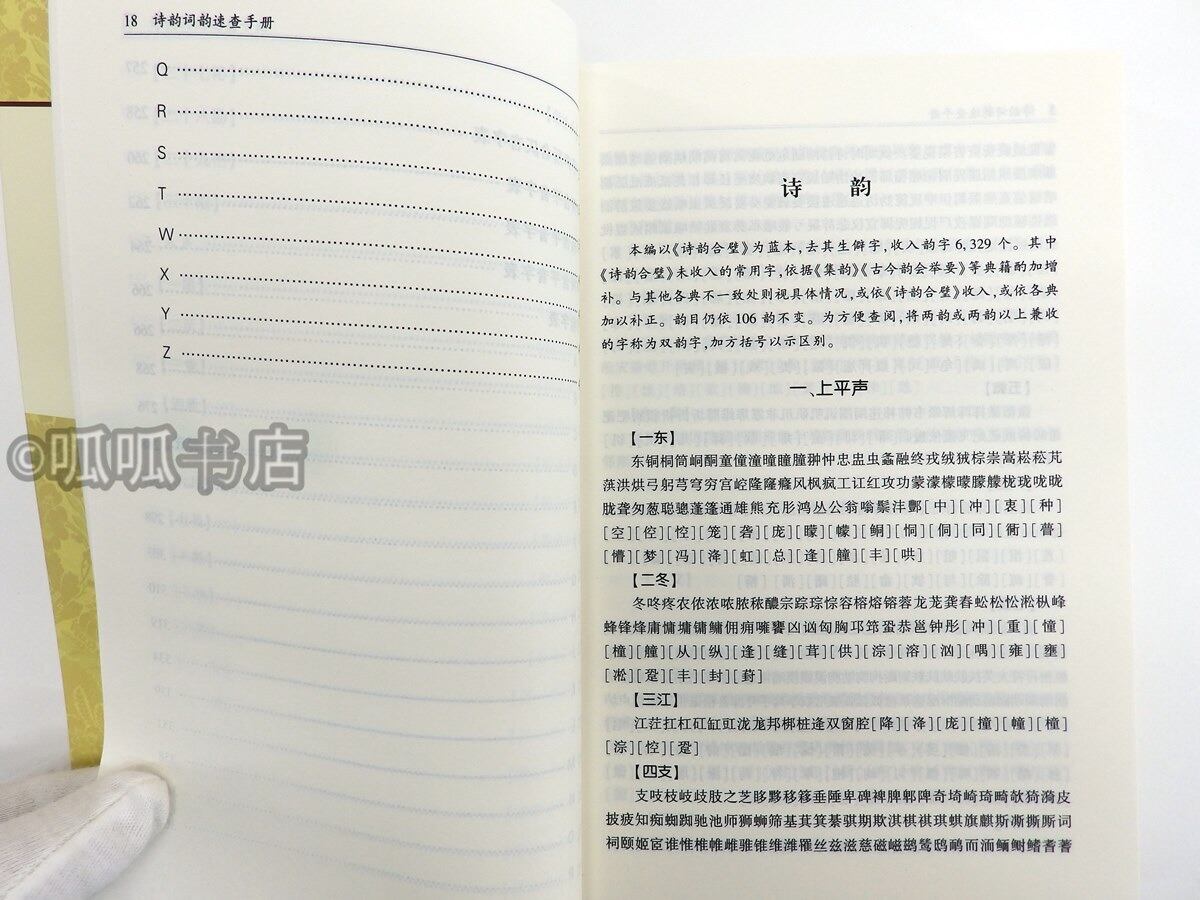 18 诗韵词韵速查手册
Q
R
S
T
W
X
Y
Z
©呱呱书店
诗 韵
本编以《诗韵合璧》为蓝本,去其生僻字,收入韵字 6,329 个。其中
《诗韵合璧》未收入的常用字,依据《集韵》《古今韵会举要》等典籍酌加增
补。与其他各典不一致处则视具体情况,或依《诗韵合璧》收入,或依各典
加以补正。韵目仍依 106 韵不变。为方便查阅,将两韵或两韵以上兼收
的字称为双韵字,加方括号以示区别。
一、上平声
【一东】
东铜桐筒峒酮童僮潼曈瞳朣翀忡忠盅虫螽融终戎绒狨棕崇嵩崧菘芎
蕻洪烘弓躬芎穹穷宫崆隆窿癃风枫疯工讧红攻功蒙濛檬曚朦艨栊珑咙昽
胧聋匆葱聪骢蓬篷通雄熊充肜鸿丛公翁嗡鬃沣酆[中][冲][衷][种]
[空][倥][悾][笼][砻][庞][矇][幪][鲖][恫][侗][同][衕][瞢]
[懵][梦][冯][洚][虹][总][逢][艟][丰][哄]
【二冬】
冬咚疼农侬浓哝脓秾醲宗踪琮悰容榕熔镕蓉龙茏龚舂蚣松忪淞枞峰
蜂锋烽庸慵墉镛鳙佣痈噰饔凶讻匈胸邛筇蛩恭邕钟彤[冲][重][憧]
[橦][艟][从][纵][逢][缝][茸][供][淙][溶][汹][喁][雍][壅]
[凇][跫][丰][封][葑]
【三江】
江茳扛杠矼缸豇泷龙邦梆桩逄双窗腔[降][洚][庞][撞][幢][橦]
[淙][悾][跫]
【四支】
支吱枝岐歧肢之芝眵黟移簃垂陲卑碑裨脾郫陴奇埼崎琦畸欹猗漪皮
披疲知痴蜘踟驰池师狮蛳筛基萁箕綦骐期欺淇棋祺琪蜞旗麒斯澌撕厮词
祠颐姬宧谁惟椎帷雌骓锥维潍罹丝兹滋慈磁嵫鹚鸶鸱鸸而洏鲕鲥鳍耆蓍